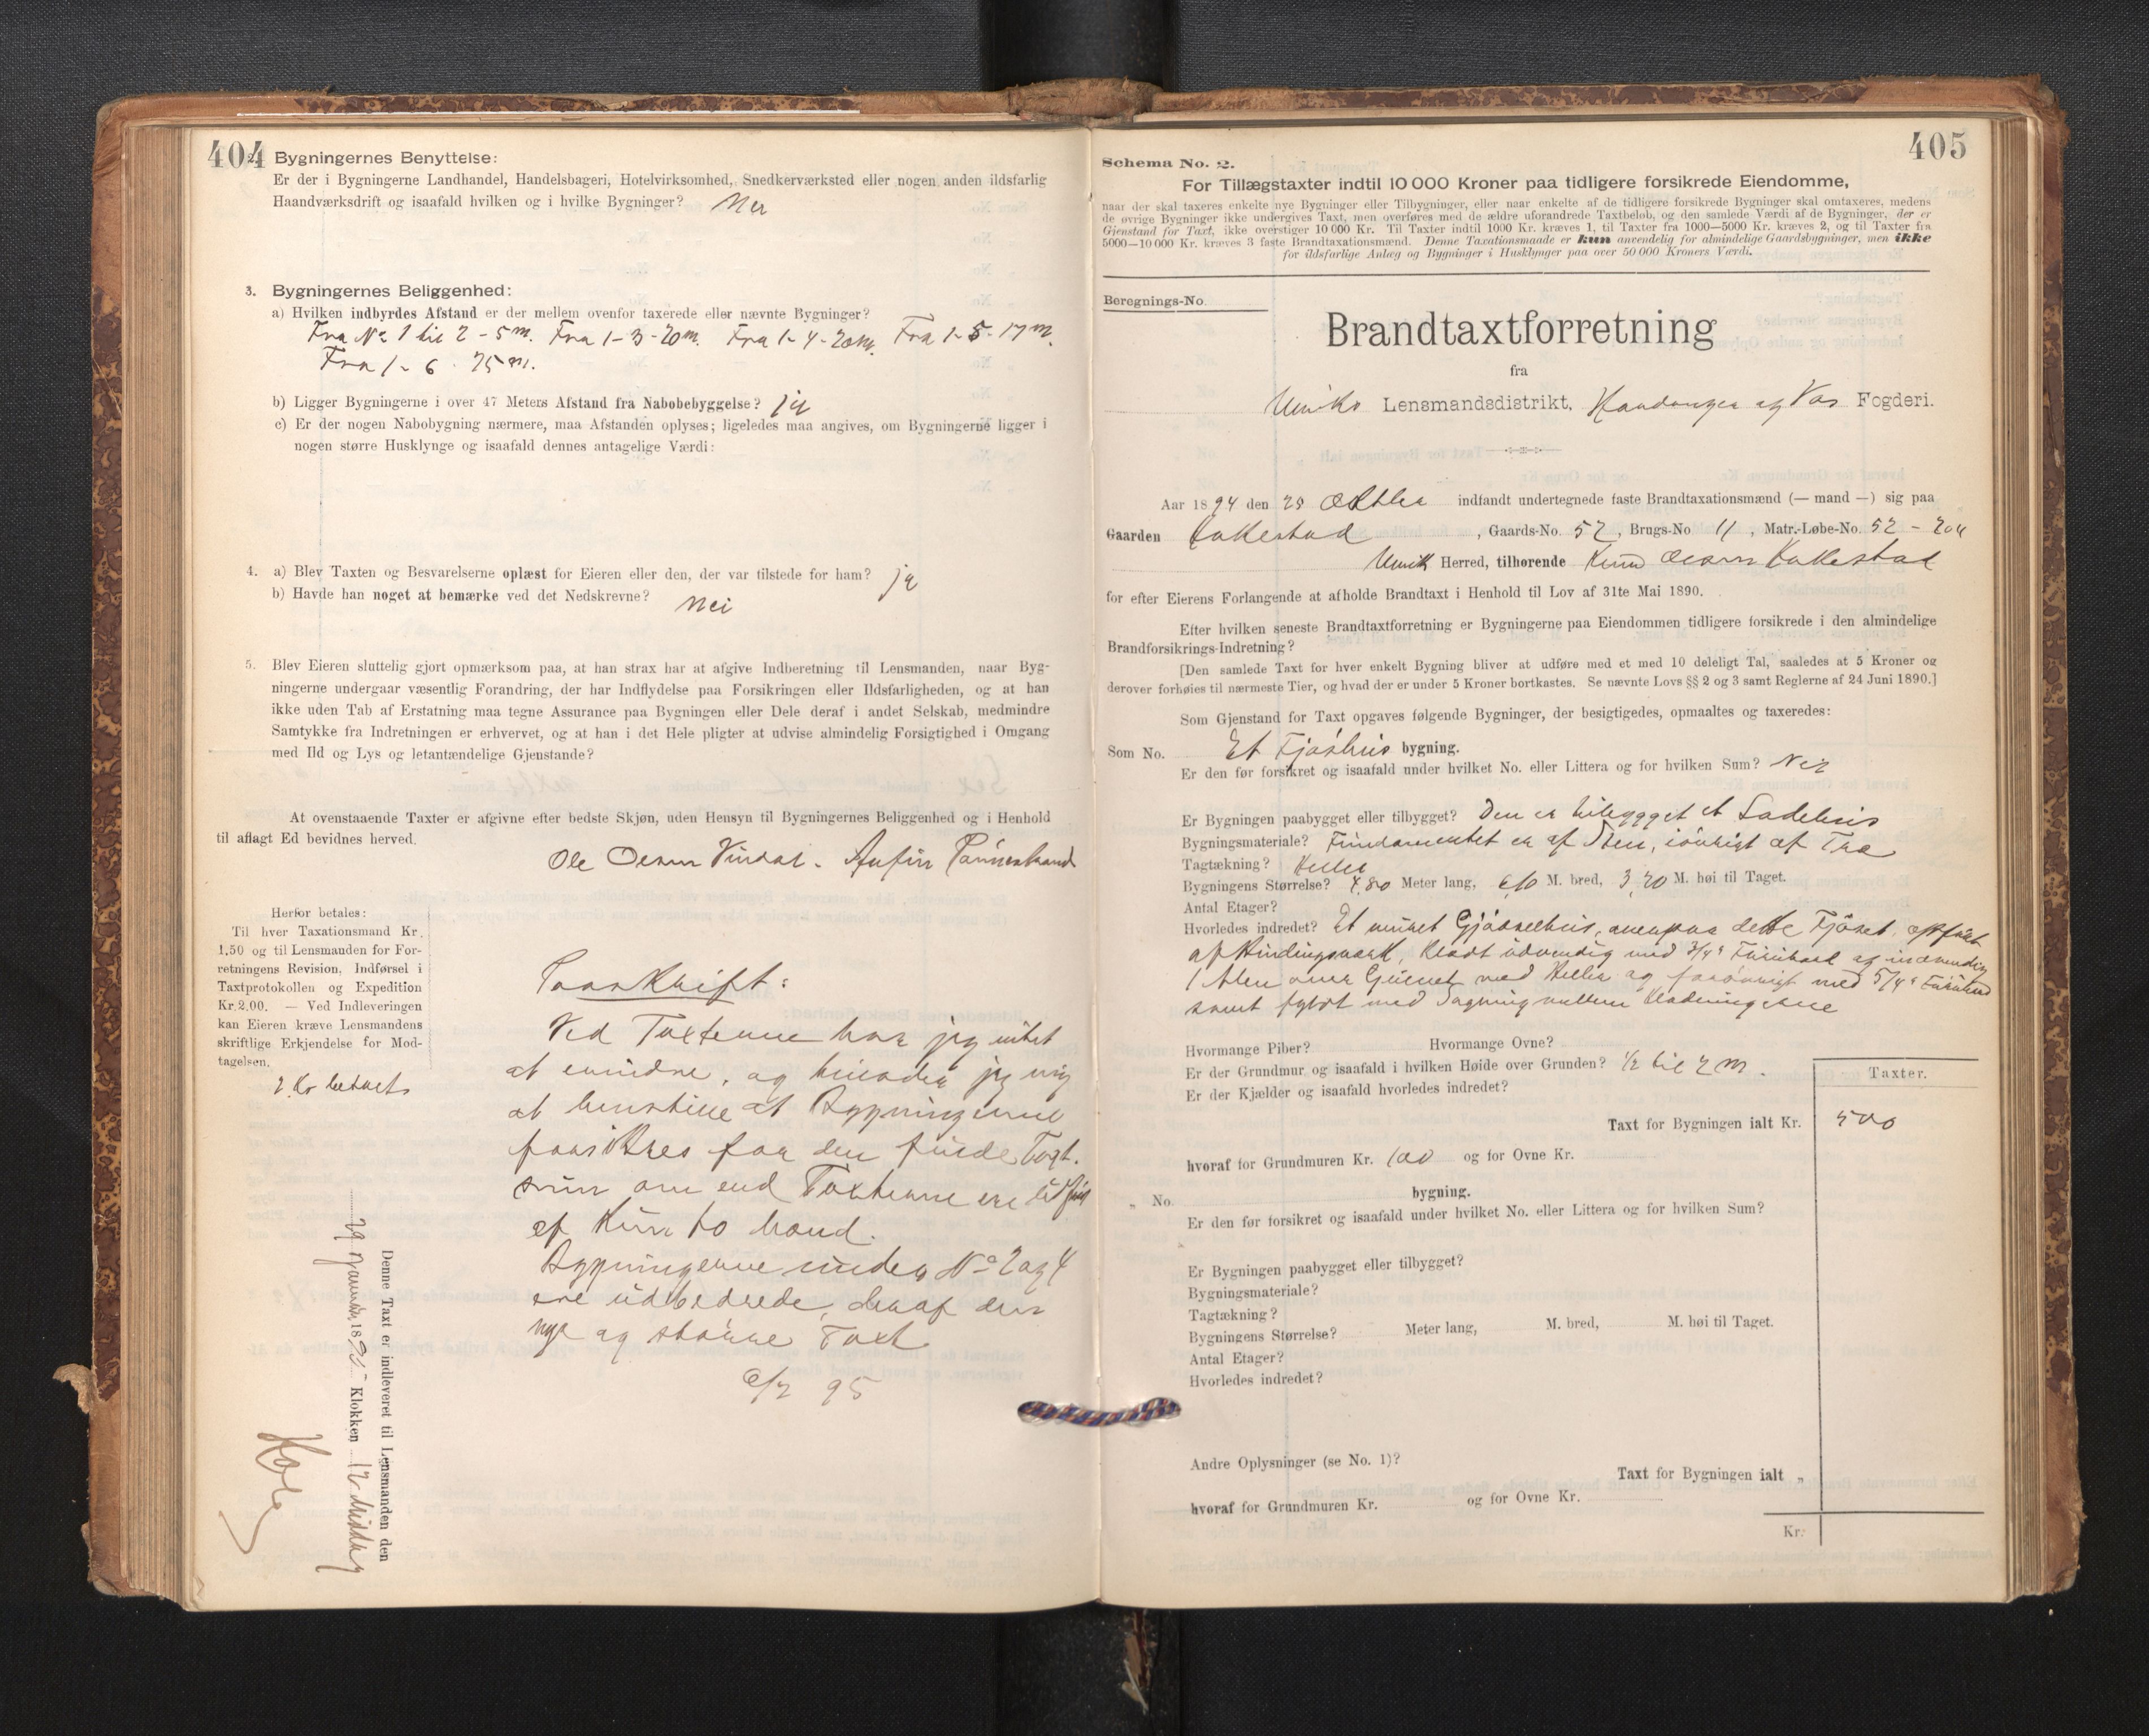 404
2. Bygningernes Benyttelse:
Er der i Bygningerne Landhandel, Handelsbageri, Hotelvirksomhed, Snedkerværksted eller nogen anden ildsfarlig
Haandværksdrift og isaafald hvilken og i hvilke Bygninger? Nei
3. Bygningernes Beliggenhed:
a) Hvilken indbyrdes Afstand er der mellem ovenfor taxerede eller nævnte Bygninger?
Fra No 1 til 2 - 5 m. Fra 1 - 3 - 20 m. Fra 1 - 4 - 20 m. Fra 1 - 5 - 17 m.
Fra 1 - 6 - 75 m.
b) Ligger Bygningerne i over 47 Meters Afstand fra Nabobebyggelse? ja
c) Er der nogen Nabobygning nærmere, maa Afstanden oplyses; ligeledes maa angives, om Bygningerne ligger i
nogen større Husklynge og isaafald dennes antagelige Værdi:
4. a) Blev Taxten og Besvarelserne oplæst for Eieren eller den, der var tilstede for ham? ja
b) Havde han noget at bemærke ved det Nedskrevne? Nei
5. Blev Eieren sluttelig gjort opmærksom paa, at han strax har at afgive Indberetning til Lensmanden, naar Byg-
ningerne undergaar væsentlig Forandring, der har Indflydelse paa Forsikringen eller Ildsfarligheden, og at han
ikke uden Tab af Erstatning maa tegne Assurance paa Bygningen eller Dele deraf i andet Selskab, medmindre
Samtykke fra Indretningen er erhvervet, og at han i det Hele pligter at udvise almindelig Forsigtighed i Omgang
med Ild og Lys og letantændelige Gjenstande?
At ovenstaaende Taxter er afgivne efter bedste Skjøn, uden Hensyn til Bygningernes Beliggenhed og i Henhold
til aflagt Ed bevidnes herved.
Ole Olsen
Herfor betales:
Til hver Taxationsmand Kr.
1.50 og til Lensmanden for For-
retningens Revision, Indførsel i
Taxtprotokollen og Expedition
Kr. 2.00. — Ved Indleveringen
kan Eieren kræve Lensmandens
skriftlige Erkjendelse for Mod-
tagelsen.
2 Kr betalt
Paaskrift:
Ved Taxterne har jeg intet
at erindre, og jeg mig
at henstille at Bygningerne
forsikres for den fulde Taxt.
om end Taxterne ere
af Kun to Mænd.
Bygningerne under No 2 og 4
ere udbedrede, deraf den
nye og større Taxt
6/2 95
Denne Taxt er indleveret til Lensmanden den
29 Januar 1895 Klokken 12 Middag
405
Schema No. 2.
For Tillægstaxter indtil 10 000 Kroner paa tidligere forsikrede Eiendomme,
naar der skal taxeres enkelte nye Bygninger eller Tilbygninger, eller naar enkelte af de tidligere forsikrede Bygninger skal omtaxeres, medens
de øvrige Bygninger ikke undergives Taxt, men overføres med de ældre uforandrede Taxtbeløb, og den samlede Værdi af de Bygninger, der er
Gjenstand for Taxt, ikke overstiger 10 000 Kr. Til Taxter indtil 1000 Kr. kræves 1, til Taxter fra 1000—5000 Kr. kræves 2, og til Taxter fra
5000—10 000 Kr. kræves 3 faste Brandtaxationsmænd. Denne Taxationsmaade er kun anvendelig for almindelige Gaardsbygninger, men ikke
for ildsfarlige Anlæg og Bygninger i Husklynger paa over 50 000 Kroners Værdi.
Beregnings-No.
Brandtaxtforretning
fra
Ulviks Lensmandsdistrikt, Hardanger og Vos Fogderi.
Aar 1894 den 25 Oktbr indfandt undertegnede faste Brandtaxationsmænd (— mand —) sig paa
Gaarden Kallestad, Gaards-No. 52, Brugs-No 11, Matr.-Løbe-No. 52 - 204
Ulvik Herred, tilhørende Knud Olsen Kallestad
for efter Eierens Forlangende at afholde Brandtaxt i Henhold til Lov af 31te Mai 1890.
Efter hvilken seneste Brandtaxtforretning er Bygningerne paa Eiendommen tidligere forsikrede i den almindelige
Brandforsikrings-Indretning?
[Den samlede Taxt for hver enkelt Bygning bliver at udføre med et med 10 deleligt Tal, saaledes at 5 Kroner og
derover forhøies til nærmeste Tier, og hvad der er under 5 Kroner bortkastes. Se nævnte Lovs §§ 2 og 3 samt Reglerne af 24 Juni 1890.]
Som Gjenstand for Taxt opgaves følgende Bygninger, der besigtigedes, opmaaltes og taxeredes:
Som No. Et Fjøshus bygning.
Er den før forsikret og isaafald under hvilket No. eller Littera og for hvilken Sum? Nei
Er Bygningen paabygget eller tilbygget? Den er tilbygget et Ladehus
Bygningsmateriale? Fundamentet er af Sten, iøvrigt af Træ
Tagtækning? Heller
Bygningens Størrelse? 7,80 Meter lang, 6,10 M. bred, 3,20 M. høi til Taget.
Antal Etager?
Hvorledes indredet? Et muret Gjødselhus, ovenpaa dette Fjøset, opført
af Bindingsværk, klædt udvendig med 3/4" Furubord og indvendig
1 Alen over Gulvet med Heller og forøvrigt med 5/4" Furubord
samt fyldt med Sagmug mellem Klædningerne
Hvormange Piber? Hvormange Ovne?
Er der Grundmur og isaafald i hvilken Høide over Grunden? 1/2 til 2 m.
Er der Kjælder og isaafald hvorledes indredet?
Taxter.
Taxt for Bygningen ialt Kr. 500
hvoraf for Grundmuren Kr. 100 og for Ovne Kr.
„ No. bygning.
Er den før forsikret og isaafald under hvilket No. eller Littera og for hvilken Sum?
Er Bygningen paabygget eller tilbygget?
Bygningsmateriale?
Tagtækning?
Bygningens Størrelse? Meter lang, M. bred, M. høi til Taget.
Antal Etager?
Hvorledes indredet?
Andre Oplysninger (se No. 1)?
Taxt for Bygningen ialt „
hvoraf for Grundmuren Kr. og for Ovne Kr.
Kr.